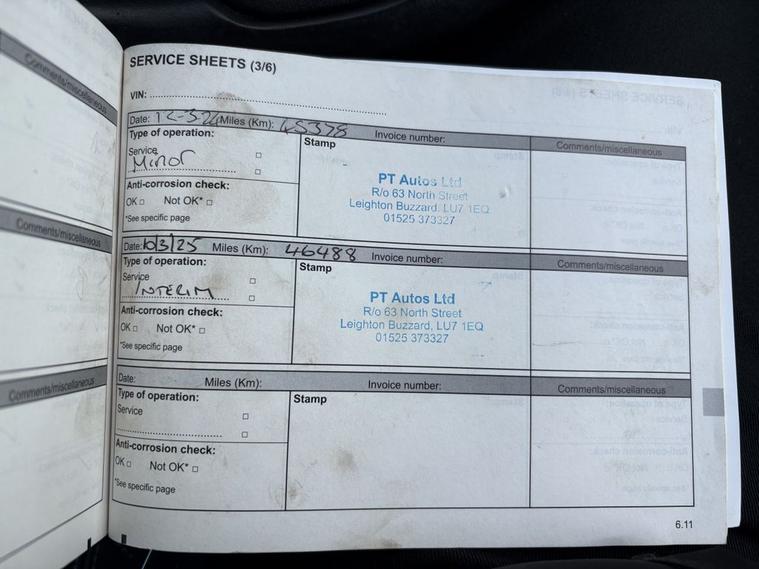 Comments/miscellaneous
Comments/miscellaneous
Comments/miscellaneous
SERVICE SHEETS (3/6)
VIN:
Date: 12-3-24 Miles (Km): 45378 Invoice number: Comments/miscellaneous
Type of operation: Stamp
Service
Minor
Anti-corrosion check:
OK □ Not OK* □
*See specific page
PT Autos Ltd
R/o 63 North Street
Leighton Buzzard, LU7 1EQ
01525 373327
Date: 10/3/25 Miles (Km): 46488 Invoice number: Comments/miscellaneous
Type of operation: Stamp
Service
INTERIM
Anti-corrosion check:
OK □ Not OK* □
*See specific page
PT Autos Ltd
R/o 63 North Street
Leighton Buzzard, LU7 1EQ
01525 373327
Date: Miles (Km): Invoice number: Comments/miscellaneous
Type of operation: Stamp
Service
Anti-corrosion check:
OK □ Not OK* □
*See specific page
6.11